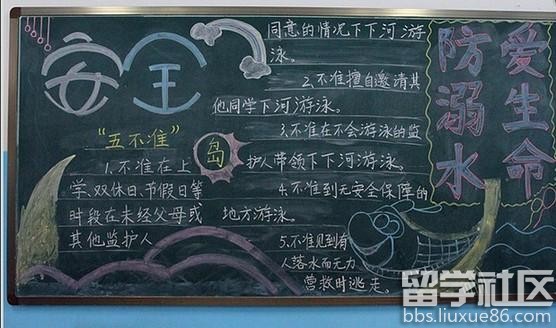 安全
"五不准"
1.不准在上
学、双休日、节假日等
时段在未经父母或
其他监护人
同意的情况下下河游
泳。
2.不准擅自邀请其
他同学下河游泳。
3.不准在不会游泳的监
护人带领下下河游泳。
4.不准到无安全保障的
地方游泳
5.不准见到有
人落水而无力
营救时逃走。
岛
爱生命
防溺水
留学社区
bbs.liuxue86.com